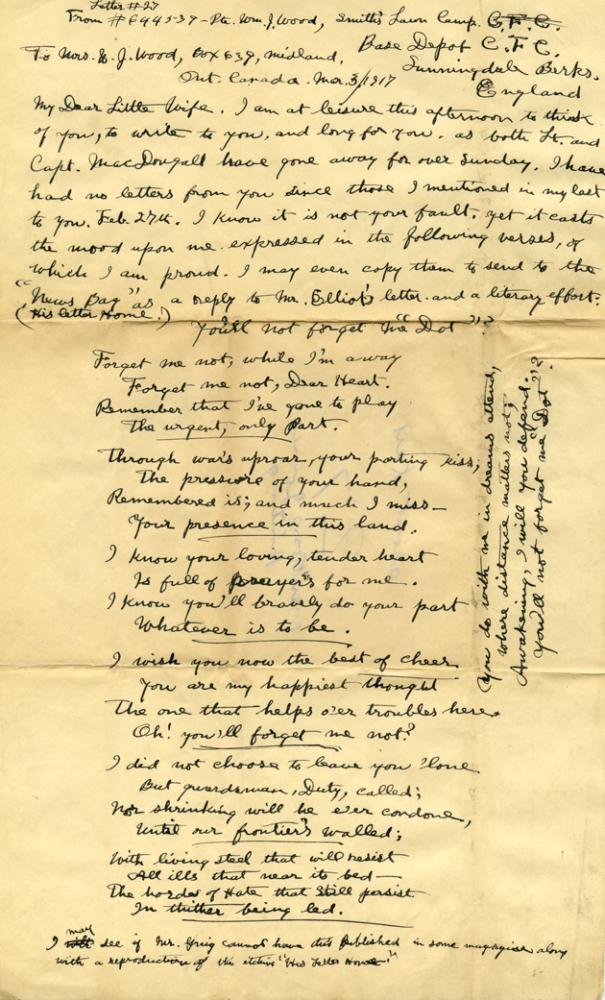 Letter #27
From #644539 - Pte. Wm. J. Wood, Smith's Lawn Camp. C.F.C.
Base Depot C.F.C.
To Mrs. E. J. Wood, Box 639, Midland,
Sunningdale Berks.
Ont. Canada. Mar. 3/1917
England
My Dear Little Wife. I am at leisure this afternoon to think
of you, to write to you, and long for you. as both Lt. and
Capt. MacDougall have gone away for over Sunday. I have
had no letters from you since those I mentioned in my last
to you. Feb. 27th. I know it is not your fault, yet it casts
the mood upon me expressed in the following verses, of
which I am proud. I may even copy them to send to the
"News Bag" as a reply to Mr. Elliot's letter and a literary effort.
(His letter Home!)
You'll not forget me "Dot"?
Forget me not, while I'm away
Forget me not, Dear Heart.
Remember that I've gone to play
The urgent, only Part.
Through war's uproar, your parting kiss,
The pressure of your hand,
Remembered is; and much I miss—
Your presence in this land.
I know your loving, tender heart
Is full of prayers for me.
I know you'll bravely do your part
Whatever is to be.
I wish you now the best of cheer
You are my happiest thought
The one that helps o'er troubles here.
Oh! you'll forget me not?
I did not choose to leave you 'lone
But guardsman, Duty, called;
Nor shrinking will he e'er condone,
Until our frontier's walled;
With living steel that will resist
All ills that near its bed—
The hordes of Hate that still persist
In thither being led.
You do with me in dreams attend,
Where distance matters not;
Awakening, I will you defend.
You'll not forget me "Dot"?
I may see if Mr. cannot have this published in some magazine along
with a reproduction of the "His Letter Home"